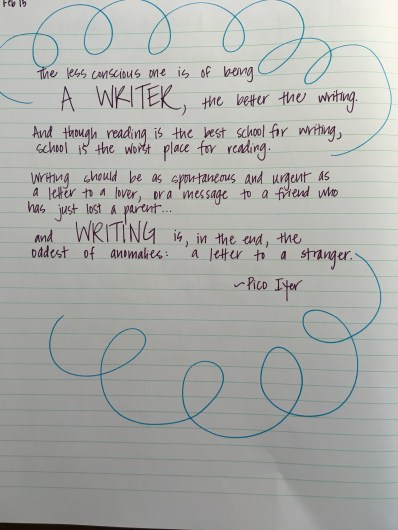 Feb 15
The less conscious one is of being
A WRITER, the better the writing.
And though reading is the best school for writing,
school is the worst place for reading.
Writing should be as spontaneous and urgent as
a letter to a lover, or a message to a friend who
has just lost a parent...
and WRITING is, in the end, the
oddest of anomalies: a letter to a stranger.
~Pico Iyer